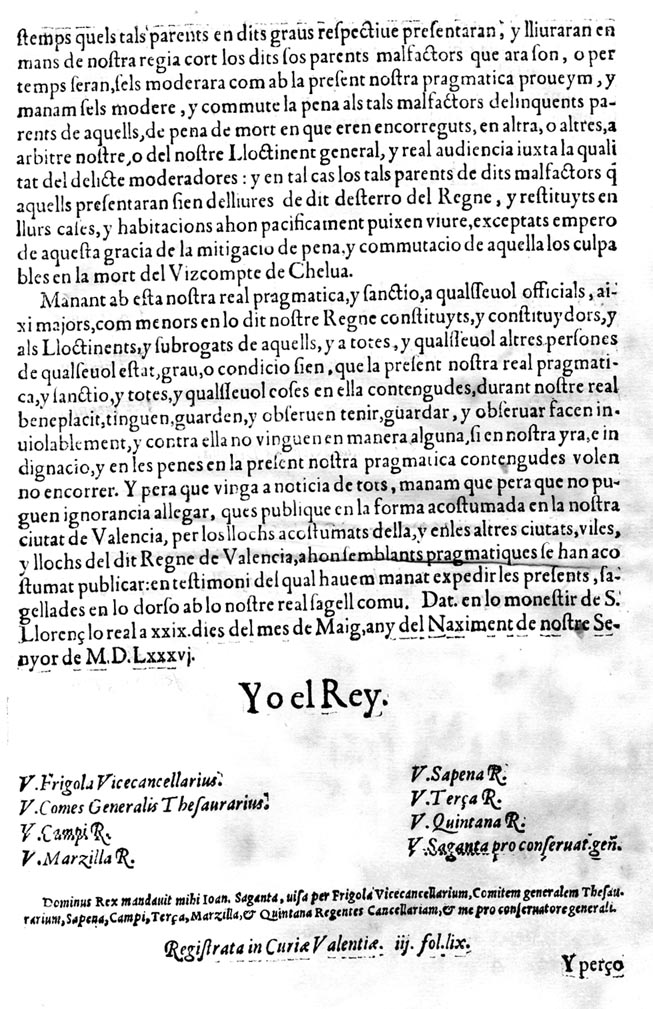 ſtemps quels tals parents en dits graus reſpectiue preſentaran, y lliuraran en
mans de noſtra regia cort los dits ſos parents malfactors que ara ſon, o per
temps ſeran, ſels moderara com ab la preſent noſtra pragmatica proueym, y
manam ſels modere, y commute la pena als tals malfactors delinquents pa-
rents de aquells, de pena de mort en que eren encorreguts, en altra, o altres, a
arbitre noſtre, o del noſtre Lloctinent general, y real audiencia iuxta la quali
tat del delicte moderadores: y en tal cas los tals parents de dits malfactors q̃
aquells preſentaran ſien delliures de dit deſterro del Regne, y reſtituyts en
llurs caſes, y habitacions ahon pacificament puixen viure, exceptats empero
de aqueſta gracia de la mitigacio de pena, y commutacio de aquella los culpa
bles en la mort del Vizcompte de Chelua.
Manant ab eſta noſtra real pragmatica, y ſanctio, a qualſſeuol officials, ai-
xi majors, com menors en lo dit noſtre Regne conſtituyts, y conſtituydors, y
als Lloctinents, y ſubrogats de aquells, y a totes, y qualſſeuol altres perſones
de qualſeuol eſtat, grau, o condicio ſien, que la preſent noſtra real pragmati-
ca, y ſanctio, y totes, y qualſſeuol coſes en ella contengudes, durant noſtre real
beneplacit, tinguen, guarden, y obſeruen tenir, guardar, y obſeruar facen in-
uiolablement, y contra ella no vinguen en manera alguna, ſi en noſtra yra, e in
dignacio, y en les penes en la preſent noſtra pragmatica contengudes volen
no encorrer. Y pera que vinga a noticia de tots, manam que pera que no pu-
guen ignorancia allegar, ques publique en la forma acoſtumada en la noſtra
ciutat de Valencia, per los llochs acoſtumats della, y en les altres ciutats, viles,
y llochs del dit Regne de Valencia, ahon ſemblants pragmatiques ſe han aco
ſtumat publicar: en teſtimoni del qual hauem manat expedir les preſents, ſa-
gellades en lo dorſo ab lo noſtre real ſagell comu. Dat. en lo moneſtir de S.
Llorenç lo real a xxix. dies del mes de Maig, any del Naximent de noſtre Se-
nyor de M.D.Lxxxvj.
Yo el Rey.
V. Frigola Vicecancellarius.
V. Comes Generalis Theſaurarius.
V. Campi R.
V. Marzilla R.
V. Sapena R.
V. Terça R.
V. Quintana R.
V. Saganta pro conſeruat. gen̄.
Dominus Rex mandauit mihi Ioan. Saganta, uiſa per Frigola Vicecancellarium, Comitem generalem Theſau-
rarium, Sapena, Campi, Terça, Marzilla, & Quintana Regentes Cancellariam, & me pro conſeruatore generali.
Regiſtrata in Curiæ Valentiæ. iij. fol. lix.
Y perço